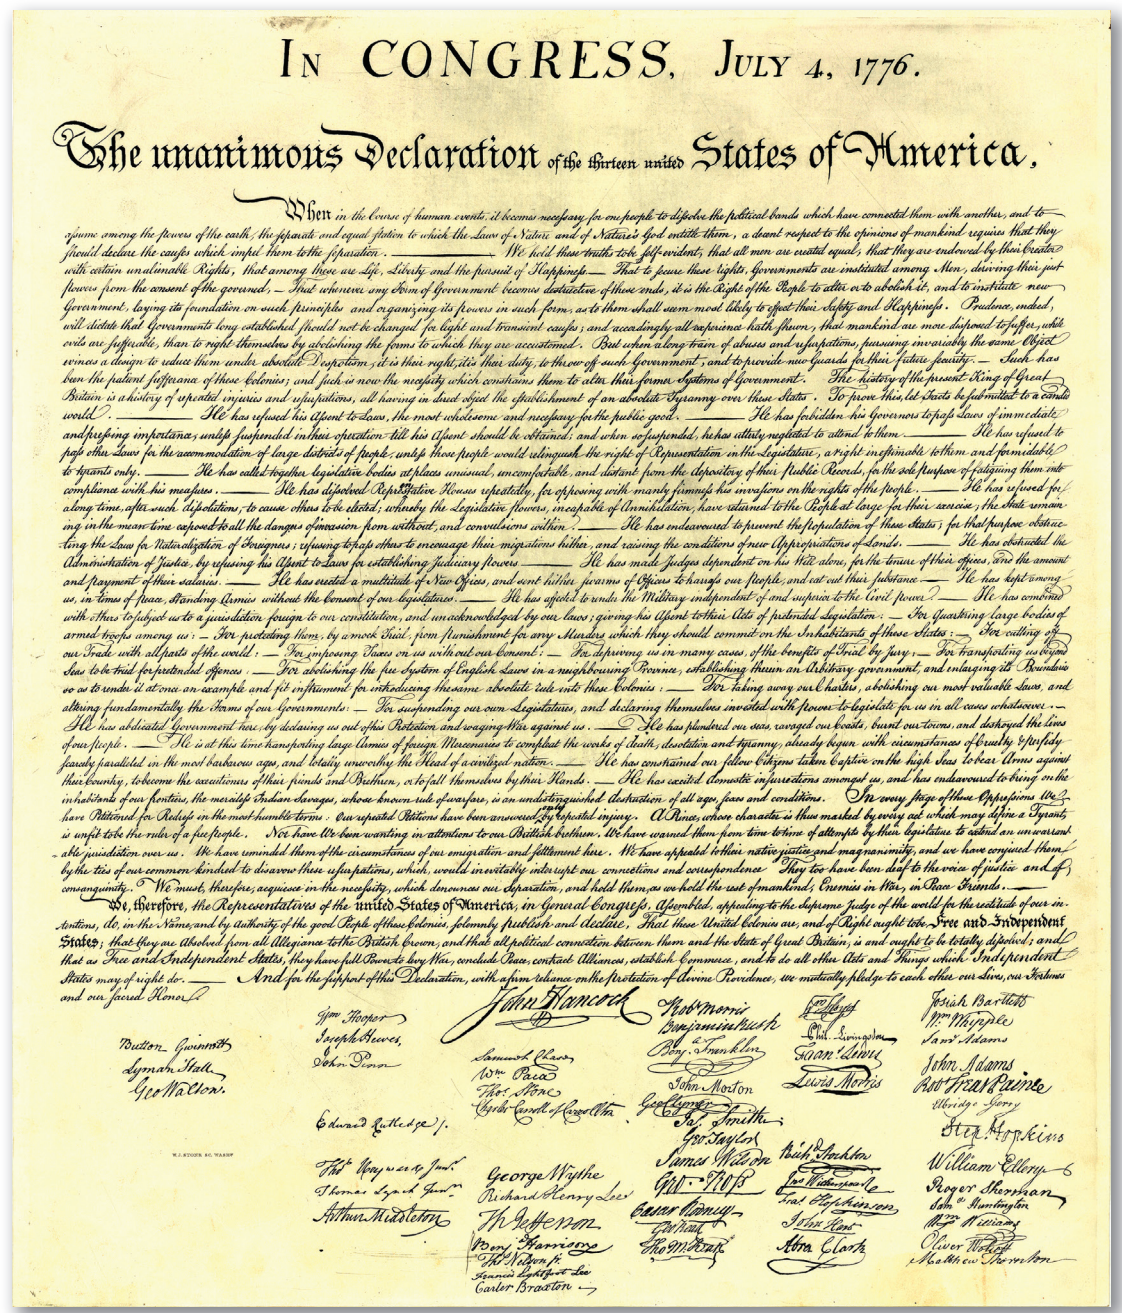 IN CONGRESS, JULY 4, 1776.
The unanimous Declaration of the thirteen united States of America,
When in the Course of human events, it becomes necessary for one people to dissolve the political bands which have connected them with another, and to
assume among the powers of the earth, the separate and equal station to which the Laws of Nature and of Nature's God entitle them, a decent respect to the opinions of mankind requires that they
should declare the causes which impel them to the separation. ——— We hold these truths to be self-evident, that all men are created equal, that they are endowed by their Creator
with certain unalienable Rights, that among these are Life, Liberty and the pursuit of Happiness.— That to secure these rights, Governments are instituted among Men, deriving their just
powers from the consent of the governed, — That whenever any Form of Government becomes destructive of these ends, it is the Right of the People to alter or to abolish it, and to institute new
Government, laying its foundation on such principles and organizing its powers in such form, as to them shall seem most likely to effect their Safety and Happiness. Prudence, indeed,
will dictate that Governments long established should not be changed for light and transient causes; and accordingly all experience hath shewn, that mankind are more disposed to suffer, while
evils are sufferable, than to right themselves by abolishing the forms to which they are accustomed. But when a long train of abuses and usurpations, pursuing invariably the same Object
evinces a design to reduce them under absolute Despotism, it is their right, it is their duty, to throw off such Government, and to provide new Guards for their future security. — Such has
been the patient sufferance of these Colonies; and such is now the necessity which constrains them to alter their former Systems of Government. The history of the present King of Great
Britain is a history of repeated injuries and usurpations, all having in direct object the establishment of an absolute Tyranny over these States. To prove this, let Facts be submitted to a candid
world. ——— He has refused his Assent to Laws, the most wholesome and necessary for the public good. ——— He has forbidden his Governors to pass Laws of immediate
and pressing importance, unless suspended in their operation till his Assent should be obtained; and when so suspended, he has utterly neglected to attend to them. ——— He has refused to
pass other Laws for the accommodation of large districts of people, unless those people would relinquish the right of Representation in the Legislature, a right inestimable to them and formidable
to tyrants only. ——— He has called together legislative bodies at places unusual, uncomfortable, and distant from the depository of their Public Records, for the sole purpose of fatiguing them into
compliance with his measures. ——— He has dissolved Representative Houses repeatedly, for opposing with manly firmness his invasions on the rights of the people. ——— He has refused for
a long time, after such dissolutions, to cause others to be elected; whereby the Legislative powers, incapable of Annihilation, have returned to the People at large for their exercise; the State remain
ing in the mean time exposed to all the dangers of invasion from without, and convulsions within. ——— He has endeavoured to prevent the population of these States; for that purpose obstruc-
ting the Laws for Naturalization of Foreigners; refusing to pass others to encourage their migrations hither, and raising the conditions of new Appropriations of Lands. ——— He has obstructed the
Administration of Justice, by refusing his Assent to Laws for establishing Judiciary powers. ——— He has made Judges dependent on his Will alone, for the tenure of their offices, and the amount
and payment of their salaries. ——— He has erected a multitude of New Offices, and sent hither swarms of Officers to harrass our people, and eat out their substance. ——— He has kept among
us, in times of peace, Standing Armies without the Consent of our legislatures. ——— He has affected to render the Military independent of and superior to the Civil power. ——— He has combined
with others to subject us to a jurisdiction foreign to our constitution, and unacknowledged by our laws; giving his Assent to their Acts of pretended Legislation: — For Quartering large bodies of
armed troops among us: — For protecting them, by a mock Trial, from punishment for any Murders which they should commit on the Inhabitants of these States: — For cutting off
our Trade with all parts of the world: — For imposing Taxes on us without our Consent: — For depriving us in many cases, of the benefits of Trial by Jury: — For transporting us beyond
Seas to be tried for pretended offences: — For abolishing the free System of English Laws in a neighbouring Province, establishing therein an Arbitrary government, and enlarging its Boundaries
so as to render it at once an example and fit instrument for introducing the same absolute rule into these Colonies: — For taking away our Charters, abolishing our most valuable Laws, and
altering fundamentally the Forms of our Governments: — For suspending our own Legislatures, and declaring themselves invested with power to legislate for us in all cases whatsoever. —
He has abdicated Government here, by declaring us out of his Protection and waging War against us. ——— He has plundered our seas, ravaged our Coasts, burnt our towns, and destroyed the lives
of our people. ——— He is at this time transporting large Armies of foreign Mercenaries to compleat the works of death, desolation and tyranny, already begun with circumstances of Cruelty & perfidy
scarcely paralleled in the most barbarous ages, and totally unworthy the Head of a civilized nation. ——— He has constrained our fellow Citizens taken Captive on the high Seas to bear Arms against
their Country, to become the executioners of their friends and Brethren, or to fall themselves by their Hands. ——— He has excited domestic insurrections amongst us, and has endeavoured to bring on the
inhabitants of our frontiers, the merciless Indian Savages, whose known rule of warfare, is an undistinguished destruction of all ages, sexes and conditions. In every stage of these Oppressions We
have Petitioned for Redress in the most humble terms: Our repeated Petitions have been answered only by repeated injury. A Prince, whose character is thus marked by every act which may define a Tyrant,
is unfit to be the ruler of a free people. Nor have We been wanting in attentions to our Brittish brethren. We have warned them from time to time of attempts by their legislature to extend an unwarrant
able jurisdiction over us. We have reminded them of the circumstances of our emigration and settlement here. We have appealed to their native justice and magnanimity, and we have conjured them
by the ties of our common kindred to disavow these usurpations, which, would inevitably interrupt our connections and correspondence. They too have been deaf to the voice of justice and of
consanguinity. We must, therefore, acquiesce in the necessity, which denounces our Separation, and hold them, as we hold the rest of mankind, Enemies in War, in Peace Friends. ———
We, therefore, the Representatives of the united States of America, in General Congress, Assembled, appealing to the Supreme Judge of the world for the rectitude of our in-
tentions, do, in the Name, and by Authority of the good People of these Colonies, solemnly publish and declare, That these United Colonies are, and of Right ought to be Free and Independent
States; that they are Absolved from all Allegiance to the British Crown, and that all political connection between them and the State of Great Britain, is and ought to be totally dissolved; and
that as Free and Independent States, they have full Power to levy War, conclude Peace, contract Alliances, establish Commerce, and to do all other Acts and Things which Independent
States may of right do. ——— And for the support of this Declaration, with a firm reliance on the protection of divine Providence, we mutually pledge to each other our Lives, our Fortunes
and our sacred Honor.
Button Gwinnett
Lyman Hall
Geo Walton.
W.J. STONE SC. WASHN
Wm Hooper
Joseph Hewes,
John Penn
Edward Rutledge /.
Thos Heyward Junr.
Thomas Lynch Junr.
Arthur Middleton
John Hancock
Samuel Chase
Wm Paca
Thos Stone
Charles Carroll of Carrollton
George Wythe
Richard Henry Lee
Th Jefferson
Benj Harrison
Thos Nelson jr.
Francis Lightfoot Lee
Carter Braxton
Robt Morris
Benjamin Rush
Benja Franklin
John Morton
Geo Clymer
Jas Smith.
Geo Taylor
James Wilson
Geo. Ross
Caesar Rodney
Geo Read
Tho M:Kean
Wm Floyd
Phil. Livingston
Frans Lewis
Lewis Morris
Richd Stockton
Jno Witherspoon
Fras Hopkinson
John Hart
Abra Clark
Josiah Bartlett
Wm Whipple
Saml Adams
John Adams
Robt Treat Paine
Elbridge Gerry
Step. Hopkins
William Ellery
Roger Sherman
Saml Huntington
Wm Williams
Oliver Wolcott
Matthew Thornton